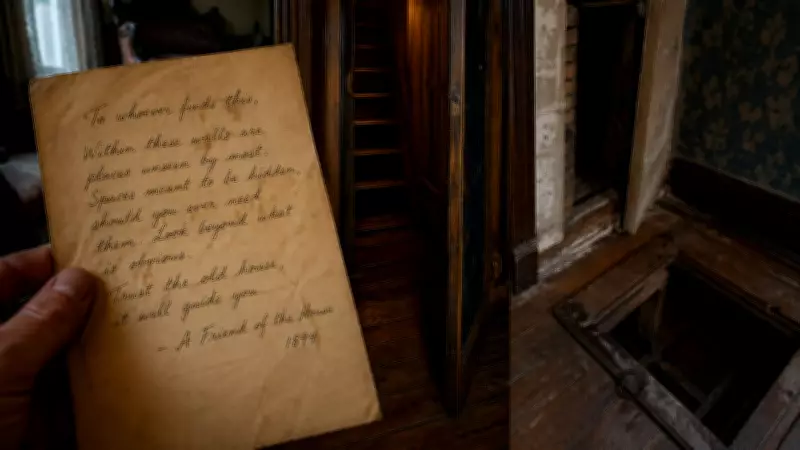 To whoever finds this,
Within these walls are
places unseen by most.
Spaces meant to be hidden,
should you ever need
them. Look beyond what
is obvious.
Trust the old house,
it will guide you.
– A Friend of the House